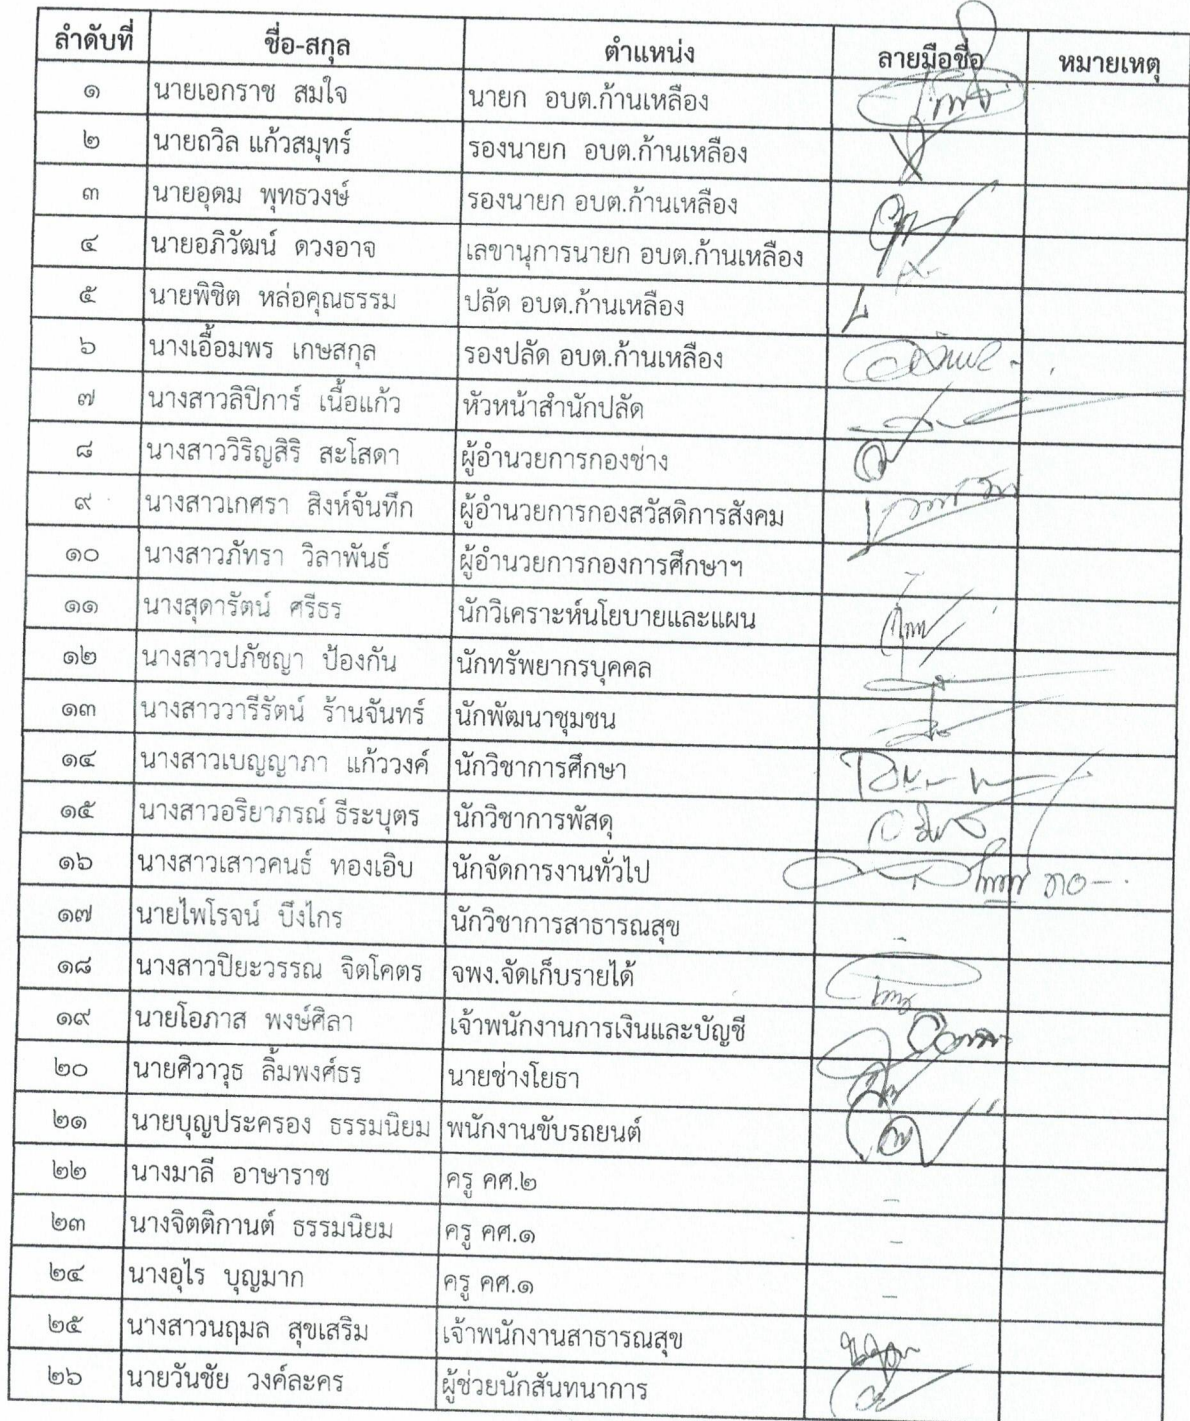 ลำดับที่ ชื่อ-สกุล ตำแหน่ง ลายมือชื่อ หมายเหตุ
๑ นายเอกราช สมใจ นายก อบต.ก้านเหลือง
๒ นายถวิล แก้วสมุทร์ รองนายก อบต.ก้านเหลือง
๓ นายอุดม พุทธวงษ์ รองนายก อบต.ก้านเหลือง
๔ นายอภิวัฒน์ ดวงอาจ เลขานุการนายก อบต.ก้านเหลือง
๕ นายพิชิต หล่อคุณธรรม ปลัด อบต.ก้านเหลือง
๖ นางเอื้อมพร เกษสกุล รองปลัด อบต.ก้านเหลือง
๗ นางสาวลิปิการ์ เนื้อแก้ว หัวหน้าสำนักปลัด
๘ นางสาววิริญสิริ สะโสดา ผู้อำนวยการกองช่าง
๙ นางสาวเกศรา สิงห์จันทึก ผู้อำนวยการกองสวัสดิการสังคม
๑๐ นางสาวภัทรา วิลาพันธ์ ผู้อำนวยการกองการศึกษาฯ
๑๑ นางสุดารัตน์ ศรีธร นักวิเคราะห์นโยบายและแผน
๑๒ นางสาวปภัชญา ป้องกัน นักทรัพยากรบุคคล
๑๓ นางสาววารีรัตน์ ร้านจันทร์ นักพัฒนาชุมชน
๑๔ นางสาวเบญญาภา แก้ววงค์ นักวิชาการศึกษา
๑๕ นางสาวอริยาภรณ์ ธีระบุตร นักวิชาการพัสดุ
๑๖ นางสาวเสาวคนธ์ ทองเอิบ นักจัดการงานทั่วไป
๑๗ นายไพโรจน์ บึงไกร นักวิชาการสาธารณสุข -
๑๘ นางสาวปิยะวรรณ จิตโคตร จพง.จัดเก็บรายได้
๑๙ นายโอภาส พงษ์ศิลา เจ้าพนักงานการเงินและบัญชี
๒๐ นายศิวาวุธ ลิ้มพงศ์ธร นายช่างโยธา
๒๑ นายบุญประครอง ธรรมนิยม พนักงานขับรถยนต์
๒๒ นางมาลี อาษาราช ครู คศ.๒ -
๒๓ นางจิตติกานต์ ธรรมนิยม ครู คศ.๑ -
๒๔ นางอุไร บุญมาก ครู คศ.๑ -
๒๕ นางสาวนฤมล สุขเสริม เจ้าพนักงานสาธารณสุข
๒๖ นายวันชัย วงค์ละคร ผู้ช่วยนักสันทนาการ